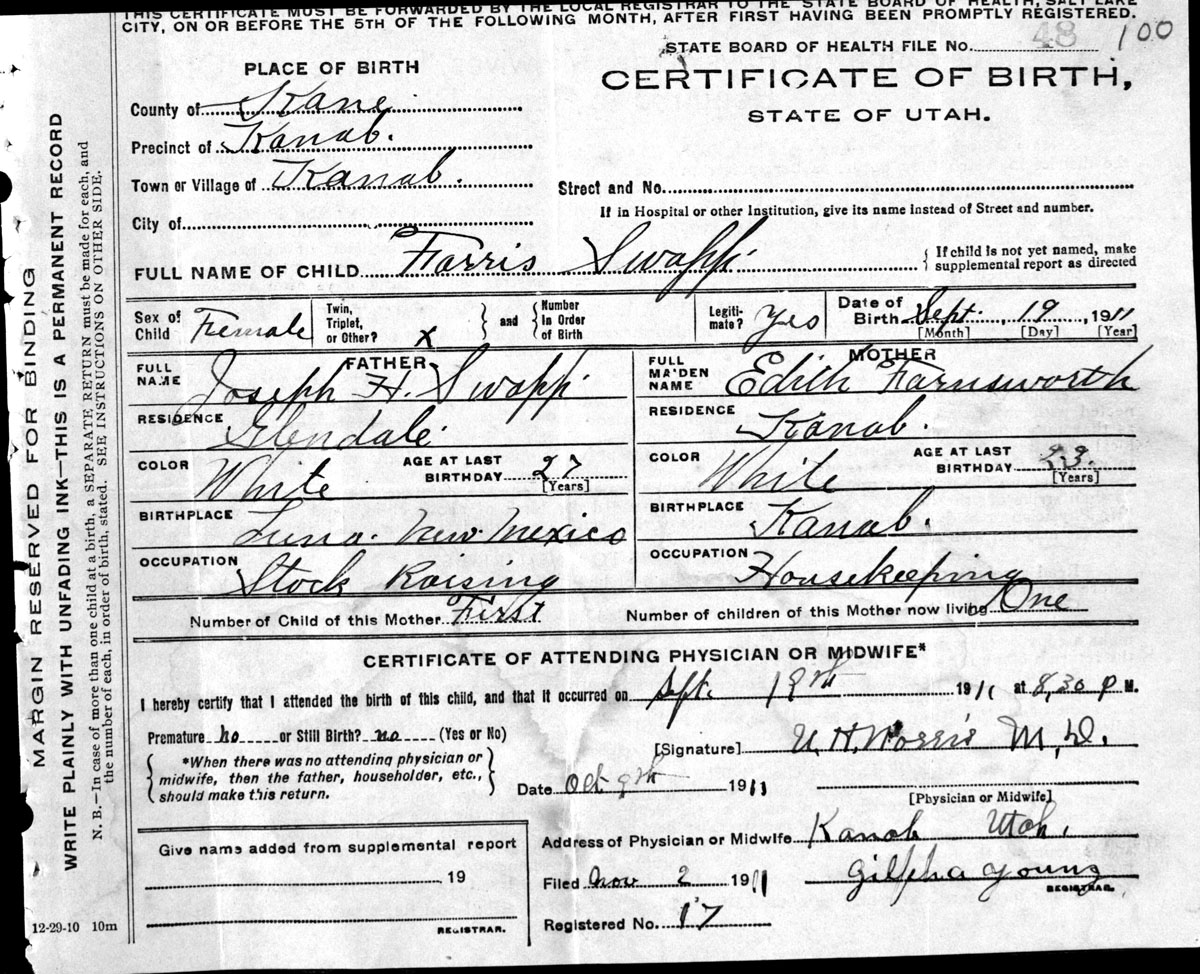 THIS CERTIFICATE MUST BE FORWARDED BY THE LOCAL REGISTRAR TO THE STATE BOARD OF HEALTH, SALT LAKE
CITY, ON OR BEFORE THE 5TH OF THE FOLLOWING MONTH, AFTER FIRST HAVING BEEN PROMPTLY REGISTERED.
STATE BOARD OF HEALTH FILE No. 48 100
PLACE OF BIRTH
CERTIFICATE OF BIRTH,
STATE OF UTAH.
County of Kane
Precinct of Kanab.
Town or Village of Kanab.
Street and No.
City of
If in Hospital or other Institution, give its name instead of Street and number.
FULL NAME OF CHILD Farris Swapp { If child is not yet named, make supplemental report as directed
Sex of Child Female Twin, Triplet, or Other? X } and { Number In Order of Birth Legiti-mate? Yes Date of Birth Sept. 19, 1911
[Month] [Day] [Year]
FATHER MOTHER
FULL NAME Joseph H. Swapp FULL MAIDEN NAME Edith Farnsworth
RESIDENCE Glendale RESIDENCE Kanab.
COLOR White AGE AT LAST BIRTHDAY 27 [Years] COLOR White AGE AT LAST BIRTHDAY 23. [Years]
BIRTHPLACE Luna. New Mexico BIRTHPLACE Kanab.
OCCUPATION Stock Raising OCCUPATION Housekeeping
Number of Child of this Mother First Number of children of this Mother now living One
CERTIFICATE OF ATTENDING PHYSICIAN OR MIDWIFE*
I hereby certify that I attended the birth of this child, and that it occurred on Sept. 19th 1911 at 8,30 P M.
Premature no or Still Birth? no (Yes or No)
[Signature] Norris M.D.
*When there was no attending physician or
midwife, then the father, householder, etc.,
should make this return.
Date Oct 9th 1911
[Physician or Midwife]
Address of Physician or Midwife Kanab Utah.
Give name added from supplemental report
19
REGISTRAR.
Filed Nov 2 1911 Young
REGISTRAR.
Registered No. 17
12-29-10 10m
MARGIN RESERVED FOR BINDING
WRITE PLAINLY WITH UNFADING INK—THIS IS A PERMANENT RECORD
N. B.—In case of more than one child at a birth, a SEPARATE RETURN must be made for each, and
the number of each, in order of birth, stated. SEE INSTRUCTIONS ON OTHER SIDE.